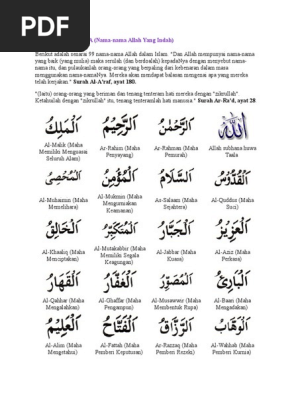 PDF
A (Nama-nama Allah Yang Indah)
Berikut adalah senarai 99 nama-nama Allah dalam Islam. "Dan Allah mempunyai nama-nama
yang baik (yang mulia) maka serulah (dan berdoalah) kepadaNya dengan menyebut nama-
nama itu, dan pulaukanlah orang-orang yang berpaling dari kebenaran dalam masa
menggunakan nama-namaNya. Mereka akan mendapat balasan mengenai apa yang mereka
telah kerjakan." Surah Al-A'raf, ayat 180.
"(Iaitu) orang-orang yang beriman dan tenang tenteram hati mereka dengan "zikrullah".
Ketahuilah dengan "zikrullah" itu, tenang tenteramlah hati manusia." Surah Ar-Ra'd, ayat 28
اَلْمَلِكُ اَلرَّحِيْمُ اَلرَّحْمٰنُ الله
Al-Malik (Maha Memiliki Mengusai Seluruh Alam) Ar-Rahim (Maha Penyayang) Ar-Rahman (Maha Pemurah) Allah subhana-huwa Taala
اَلْمُؤْمِنُ اَلسَّلَامُ اَلْقُدُّوْسُ
Al-Muhaimin (Maha Memelihara) Al-Mukmin (Maha Mengurniakan Keamanan) As-Salaam (Maha Sejahtera) Al-Quddus (Maha Suci)
اَلْخَالِقُ اَلْمُتَكَبِّرُ اَلْجَبَّارُ اَلْعَزِيْزُ
Al-Khaaliq (Maha Menciptakan) Al-Mutakabbir (Maha Memiliki Segala Keagungan) Al-Jabbar (Maha Kuasa) Al-Aziz (Maha Perkasa)
اَلْقَهَّارُ اَلْغَفَّارُ اَلْمُصَوِّرُ اَلْبَارِئُ
Al-Qahhar (Maha Mengalahkan) Al-Ghaffar (Maha Pengampun) Al-Musawwir (Maha Membentuk Rupa) Al-Baari (Maha Mengadakan)
اَلْعَلِيْمُ اَلْفَتَّاحُ اَلرَّزَّاقُ اَلْوَهَّابُ
Al-Alim (Maha Mengetahui) Al-Fattah (Maha Pemberi Keputusan) Ar-Razzaq (Maha Pemberi Rezeki) Al-Wahhab (Maha Pemberi Kurnia)